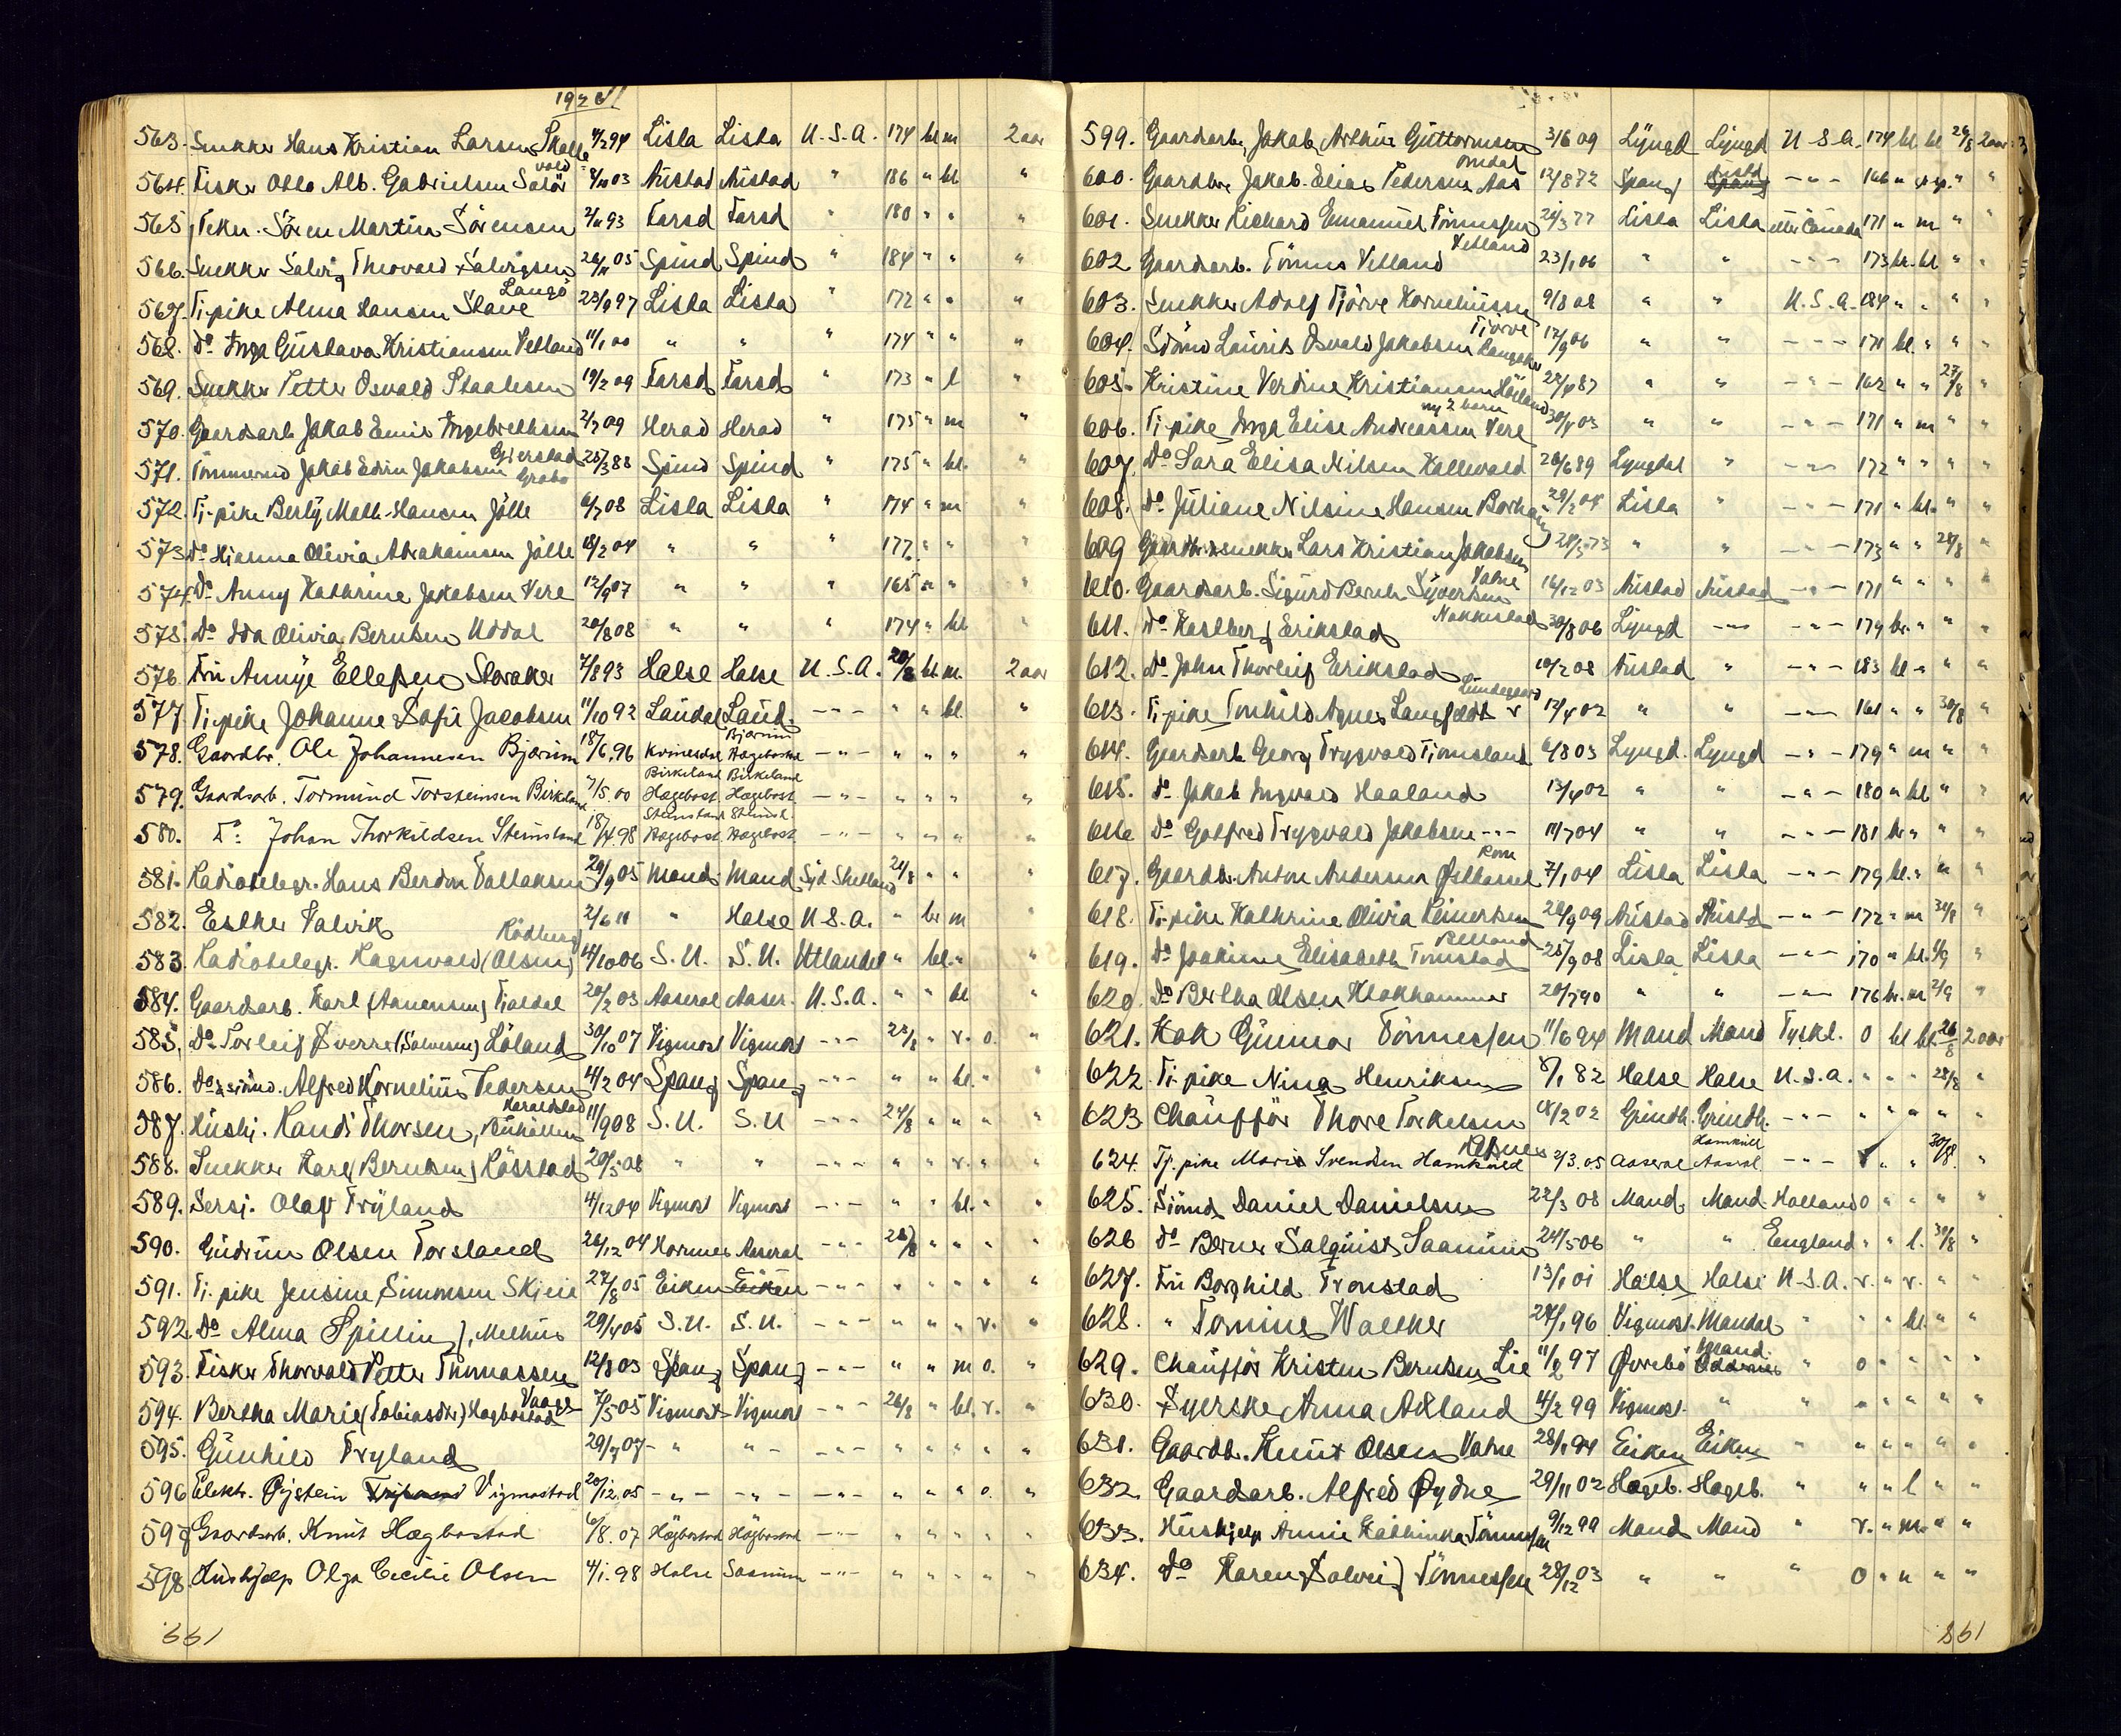 1928
563. Snekker Hans Kristian Larsen Skolle 4/2 94 Lista Lista U.S.A. 174 bl m 2 aar
vold
564. Fisker Otto Alb. Gabrielsen Salør 03 Austad Austad " 186 " bl "
565. Søren Martin Sørensen 93 Farsd Farsd " 180 " " "
566. Snekker Salvig Theovald Salvigsen 26/11 05 Spind Spind " 184 " " "
Langø
567. Tj.pike Alma Hansen Stave 23/9 97 Lista Lista " 172 " " "
568. Do Inga Gustava Kristiansen Vetland 11/1 00 " " " 174 " " "
569. Snekker Petter Osvald Staalesen 19/2 09 Farsd Farsd " 173 " l "
570. Gaardsarb Jakob Emil Ingebrethsen 2/7 09 Herad Herad " 175 " m "
Gjerstad
571. Tømmermd Jakob Edvin Jakobsen Grøbo 25/3 88 Spind Spind " 175 " bl. "
572. Tj.pike Berly Math. Hansen Jølle 6/7 08 Lista Lista " 174 " m "
573. Do Hjalma Olivia Abrahamsen Jølle 18/2 04 " " " 177 " " "
574. Do Anny Kathrine Jakobsen Vere 12/9 07 " " " 165 " " "
575. Do Ida Olivia Berntsen Uddal 20/8 08 " " " 174 " bl "
576. Fru Annye Ellefsen Storaker 7/8 93 Halse Halse U.S.A. 20/8 bl m. 2 aar
577. Tj.pike Johanne Sofie Jacobsen 11/10 92 Laudal Laud. -"- " " bl. "
Bjørum
578. Gaardbr. Ole Johannesen Bjørum 18/6.96 Kvinesdal Hægebostad -"- " " " "
Birkeland Birkeland
579. Gaardsarb. Tormund Torsteinsen Birkeland 7/5.00 Hægebost. Hægebost. -"- " " " "
Steinsland Steinsl.
580. Do: Johan Thorkildsen Steinsland 18/4.98 Hægebost. Hægebost. -"- " " " "
581. Radiotelegr. Hans Berdon Tallaksen 20/9 05 Mand. Mand Syd Shetland 21/8 " " "
582. Esther Valvik 2/6 11 " Halse U.S.A. " br m "
Rødberg
583. Radiotelegr. Ragnvald (Olsen) 14/10 06 S.U. S.U. Utlandet " bl. " "
584. Gaardsarb. Karl (Aanensen) 20/2 03 Aaseral Aaser. U.S.A. " " bl "
585. Do Torleif Sverre (Salvesen) Høland 30/10 07 Vigmost Vigmost -"- 22/8 " r. o. "
586. Do & sjømd. Alfred Kornelius Pedersen 4/2 04 Spang Spang -"- " " bl. " "
Haraldstad
587. Hushj. Randi Thorsen, 11/9 08 S.U. S.U -"- 24/8 " " " "
588. Snekker Kare (Berntsen) Røsstad 20/5 08 " " -"- " " r. " "
589. Sersj. Olaf Fryland 4/12 04 Vigmost Vigmost -"- " " bl. " "
590. Gudrun Olsen Torsland 26/12 04 Hornnes Aaseral -"- 25/8 " " " "
591. Tj.pike Jensine Simonsen Skjeie 27/8 05 Eiken Eiken -"- " " " " "
592. Do Alma Spilling, Melhus 29/4 05 S.U. S.U. -"- " " " r. "
593. Fisker Thorvald Petter Thomassen 12/8 03 Spang Spang -"- " " m o. "
Vaage
594. Bertha Marie (Tobiasdtr) Hægbostad 7/5 05 Vigmost Vigmost -"- 26/8 " bl. r. "
595. Gunhild Fryland 29/7 07 -"- "- -"- " " " " "
596 Elektr. Øystein Fryland Vigmostad 20/12.05 -"- -"- -"- " " " o. "
597 Gaardsarb. Knut Hægbostad 6/8. 07 Hægbostad Hægbostad -"- " " " " "
598. Hushjelp Olga Cecilie Olsen 4/1. 98 Halse Søgne -"- " " " " "
661
599. Gaardarb. Jakob Arthur Guttormsen 3/6 09 Lyngd Lyngd U.S.A. 174 bl bl 24/8 2 aar
Omdal Austd
600. Gaardbr. Jakob Elias Pedersen Aas 12/8 72 Spang Spang -"- 166 " sp. " "
601. Snekker Richard Emanuel Tønnessen 24/3 77 Lista Lista eller Canada 171 " m " "
Vetland
602. Gaardarb. Tønnes Vetland 23/1 06 " " -"- 173 br. bl. " "
603. Snekker Adolf Tjørve Korneliussen 9/8 08 " " U.S.A. 184 " " " "
Tjørve
604. Sjømd Laurits Osvald Jakobsen Langaker 12/9 06 " " -"- 171 bl. " " "
605. Kristine Verdine Kristiansen Høiland 22/4 87 " " -"- 162 " " 27/8 "
m/ 2 barn
606. Tj.pike Inga Elise Andreassen Vere 30/4 03 " " -"- 171 " m " "
607. Do Sara Elisa Nilsen Kallevold 26/6 89 Lyngdal " -"- 172 " " " "
608. Do Juliane Nilsine Hansen Borhaug 29/2 04 Lista " -"- 171 " bl. " "
609 Gaardbr. & snekker Lars Kristian Jakobsen 28/5 73 " " -"- 173 " " 28/8 "
Vatne
610. Gaardsarb. Sigurd Bernh. Syvertsen 16/12 03 Austad Austad -"- 171 " " " "
Nakkestad
611. Do Kaslberg Erikstad 30/8 06 Lyngd -"- -"- 179 br. " " "
612. Do John Thorleif Erikstad 10/2 08 Austad " -"- 183 bl " " "
Lundegaard
613. Tj.pike Tonhild Agnes Langfeldt r 12/4 02 " " -"- 161 " " 30/8 "
614. Gaardarb. Georg Trygvald Tjomsland 6/8 03 Lyngd. Lyngd -"- 179 " m " "
615. Do Jakob Ingvald Haaland 13/4 02 " " -"- 180 " bl " "
616 Do Gotfred Trygvald Jakobsen -"- 11/7 04 " " -"- 181 br " " "
Rom
617. Gaardbr. Anton Andersen Ølhassel 7/1 04 Lista Lista -"- 179 bl. " " "
618. Tj.pike Kathrine Olivia Reinertsen 26/9 09 Austad Austd -"- 172 " m 31/8 "
Belland
619. Do Joakime Elisabeth Tomstad 25/9 08 Lista Lista -"- 170 " bl. 1/9 "
620. Do Bertha Olsen Klokhammer 20/7 90 " " -"- 176 br. m 2/9 "
621. Kok Gunnar Tønnessen 11/6 94 Mand Mand Tyskl. O bl bl. 26/8 2 aar
622. Tj.pike Nina Henriksen 8/1 82 Halse Halse U.S.A. " " " 28/8 "
623. Chauffør Thore Torkelsen 18/2 02 Grindh. Grindh. -"- " " " " "
Hamkoll
624. Tj.pike Marie Svendsen 2/3.05 Aaseral Aaseral -"- r " " 30/8. "
625. Sjømd Daniel Danielsen 22/3 08 Mand. Mand Holland O " " " "
626 Do Berner Salquist Saanum 24/5 06 " " England " " l. 30/8 "
627. Fru Borghild Tronstad 13/1 01 Halse Halse U.S.A. r. " r. " "
628. " Tomine Walther 28/1 96 Vigmost. Mandal " " " bl. " "
Mand.
629. Chauffør Kristen Berntsen Lie 11/2 97 Øvrebø Oddernes " o " " " "
630. Syerske Anna Aaland 4/2 99 Vigmost. " " " " " " "
631. Gaardbr. Knut Olsen Vatne 28/1 94 Eiken Eiken " " " " " "
632. Gaardsarb. Alfred Øydne 29/11 02 Hægeb. Hægeb. " " " l " "
633. Hushjelp Annie Kathinka Tønnessen 9/12 99 Mand Mand " r. " m. " "
634. Do Karen (Salvei) Tønnessen 28/12 03 " " " O " " " "
661